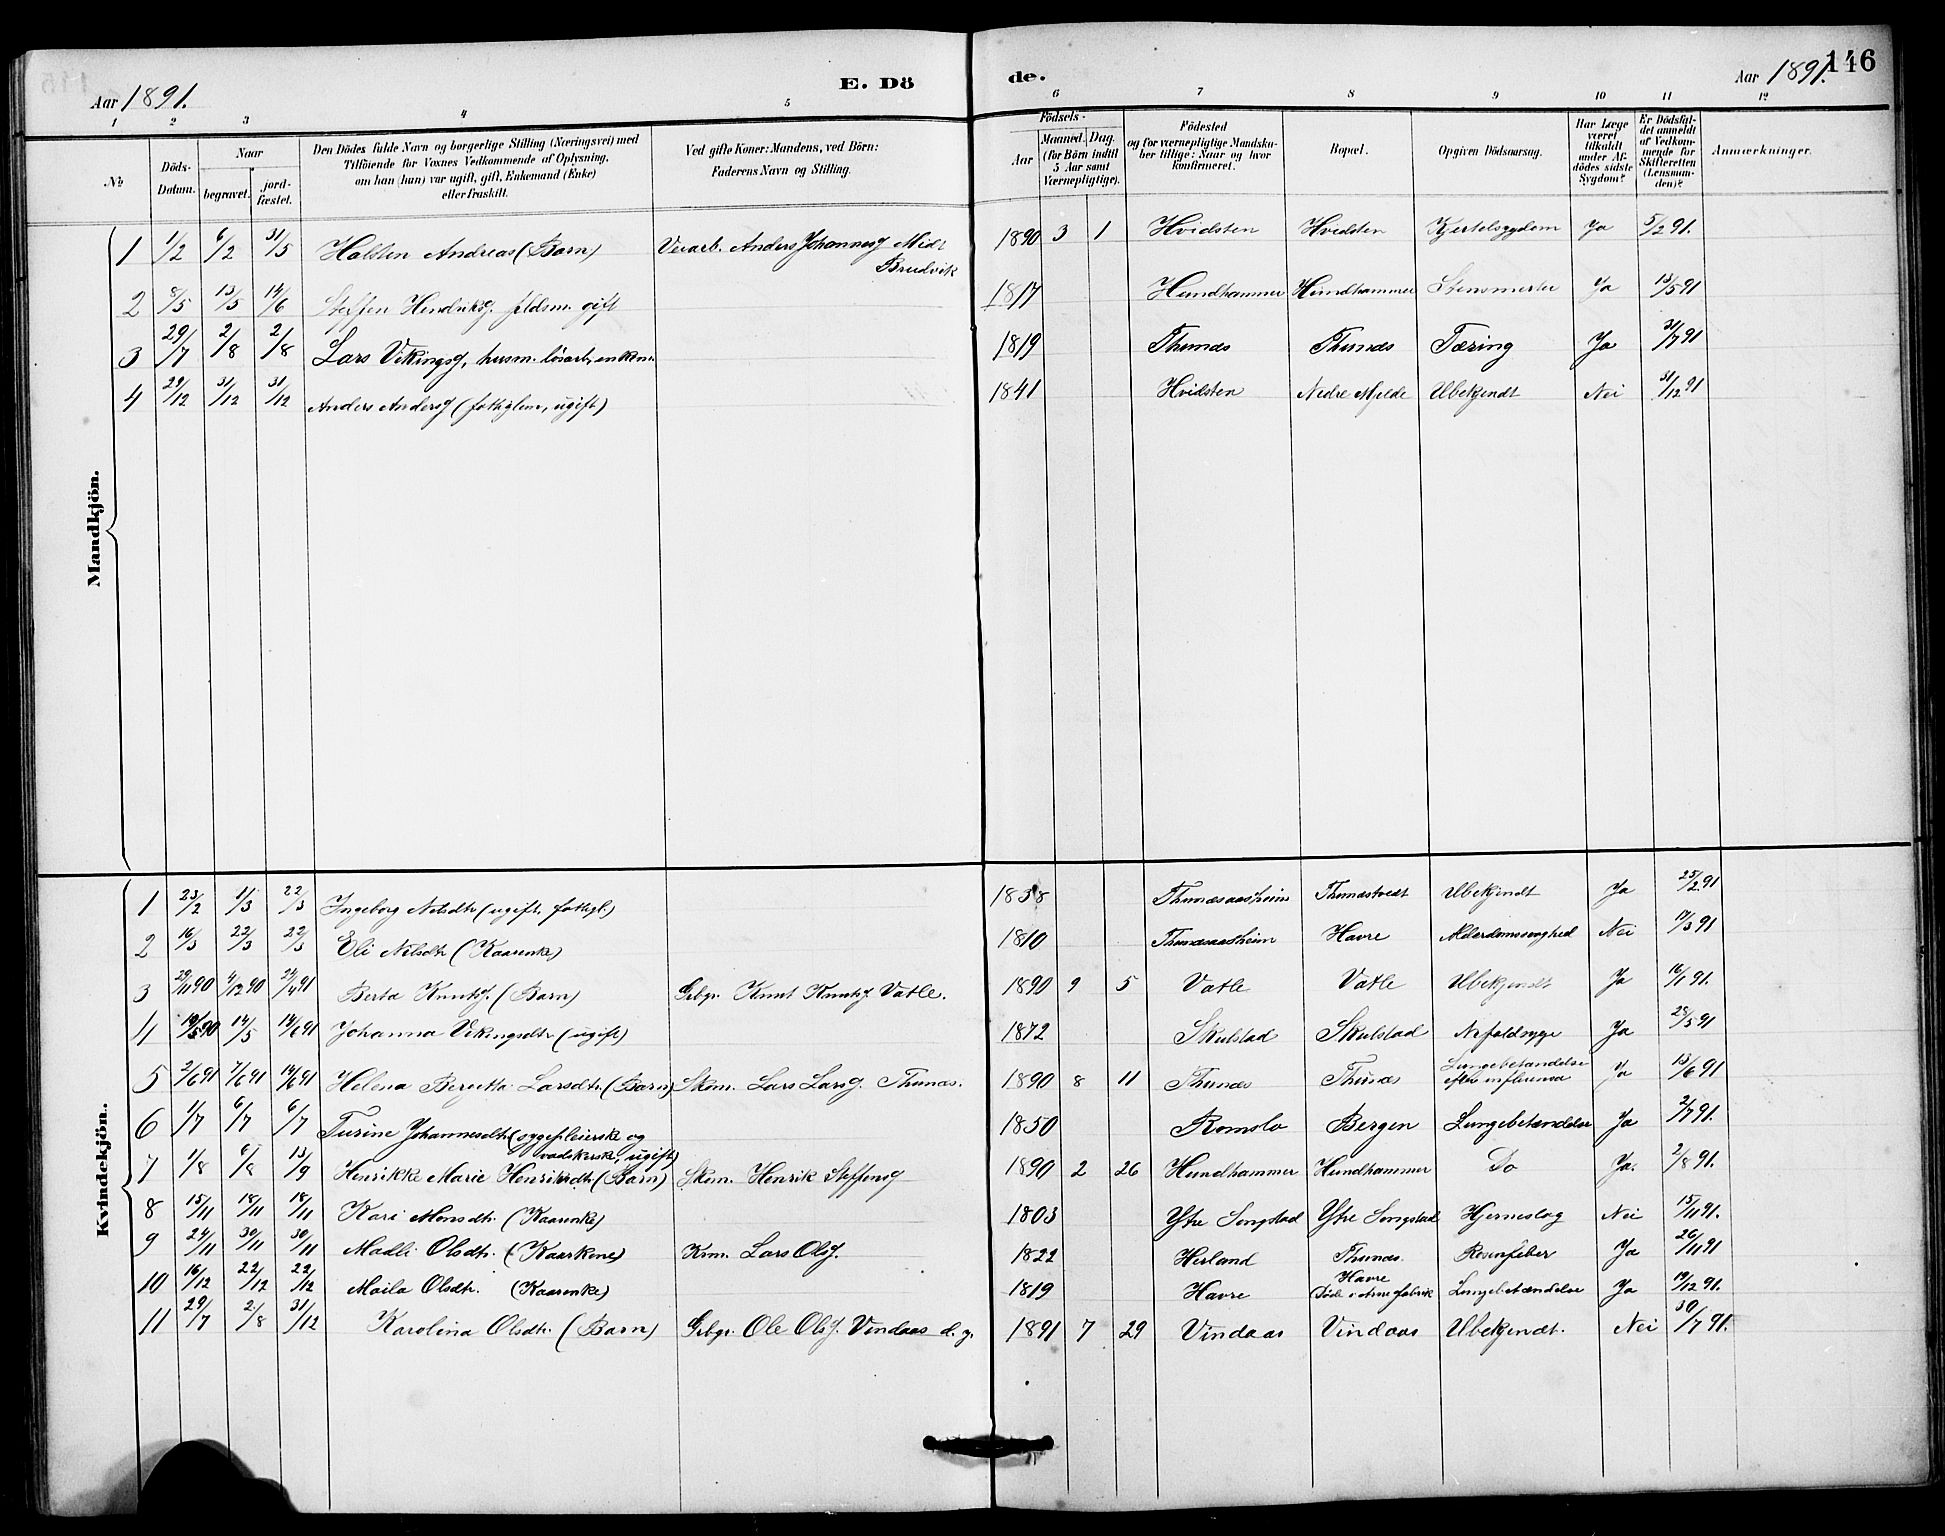 146
Aar 1891.
E. Dö
de.
Aar 1891.
1 2 3 4 5 6 7 8 9 10 11 12
No
Döds-Datum.
Naar
begravet.
jord-fæstet.
Den Dödes fulde Navn og borgerlige Stilling (Næringsvei) med
Tilföiende for Voxnes Vedkommende af Oplysning,
om han (hun) var ugift, gift, Enkemand (Enke)
eller fraskilt.
Ved gifte Koner: Mandens, ved Börn:
Faderens Navn og Stilling.
Födsels-
Aar
Maaned. Dag.
(for Börn indtil
5 Aar samt
Værnepligtige).
Födested
og for værnepligtige Mandska-
ber tillige: Naar og hvor
konfirmeret.
Bopæl.
Opgiven Dödsaarsag.
Har Læge
været
tilkaldt
under Af-
dödes sidste
Sygdom?
Er Dödsfal-
det anmeldt
af Vedkom-
mende for
Skifteretten
(Lensman-
den)?
Anmærkninger.
Mandkjön.
1 1/2 6/2 31/5 Halsten Andreas (Barn) Veiarb. Anders Johannesg Midt Brudvik 1890 3 1 Hvidsten Hvidsten Kjertelsygdom Ja 5/2 91.
2 8/5 13/5 14/6 Steffen Hendriksg. fldsm. gift 1817 Hundhammer Hundhammer Stensmerter Ja 13/5 91
3 29/7 2/8 2/8 Lars Vikingsg, husm. lösarb, enkem. 1819 Thunæs Thunæs Tæring Ja 31/7 91
4 29/12 31/12 31/12 Anders Andersg (fattiglem, ugift) 1841 Hvidsten Nedre Mjelde Ubekjendt Nei 31/12 91
Kvindekjön.
1 23/2 1/3 22/3 Ingeborg Nelsdtr (ugift, fattigl.) 1838 Thunæsaasheim Thunæstvedt Ubekjendt Ja 25/2 91
2 16/3 22/3 22/3 Eli Nelsdtr (Kaarenke) 1810 Thunæsaasheim Havre Alderdomssvaghed Nei 19/3 91
3 29/11 90 4/12 90 29/4 91 Berta Knutsg. (Barn) Grbgr. Knut Knutsg Vatle. 1890 9 5 Vatle Vatle Ubekjendt Ja 16/1 91.
4 10/5 90 14/5 14/6 91 Johanna Vikingsdtr (ugift) 1872 Skulstad Skulstad Nefaldsyge Ja 23/5 91
5 2/6 91 7/6 91 14/6 91 Helena Bergitta Larsdtr. (Barn) Skom. Lars Larsg. Thunæs. 1890 8 11 Thunæs Thunæs Lungebetændelse efter influensa Ja 13/6 91
6 1/7 6/7 6/7 Turine Johannesdtr (sygepleierske og vadskerske, ugift) 1850 Romslo Bergen Lungebetændelse Ja 2/7 91.
7 1/8 6/8 13/9 Henrikke Marie Henriksdtr (Barn) Skom. Henrik Steffensg 1890 2 26 Hundhammer Hundhammer Do Ja. 2/8 91.
8 15/11 18/11 18/11 Kari Monsdtr. (Kaarenke) 1803 Ytre Songstad Ytre Songstad Hjerneslag Nei 15/11 91.
9 24/11 30/11 30/11 Madli Olsdtr. (Kaarkone) Krm. Lars Olsg. 1822 Herland Thunæs. Rosenfeber Ja 26/11 91
10 16/12 22/12 22/12 Maila Olsdtr. (Kaarenke) 1819 Havre Havre Döde i Arne fabrik Lungebetændelse Ja 19/12 91.
11 29/7 2/8 31/12 Karolina Olsdtr. (Barn) Grbgr. Ole Olsg. Vindaas d. y. 1891 7 29 Vindaas Vindaas Ubekjendt. Nei 30/7 91.